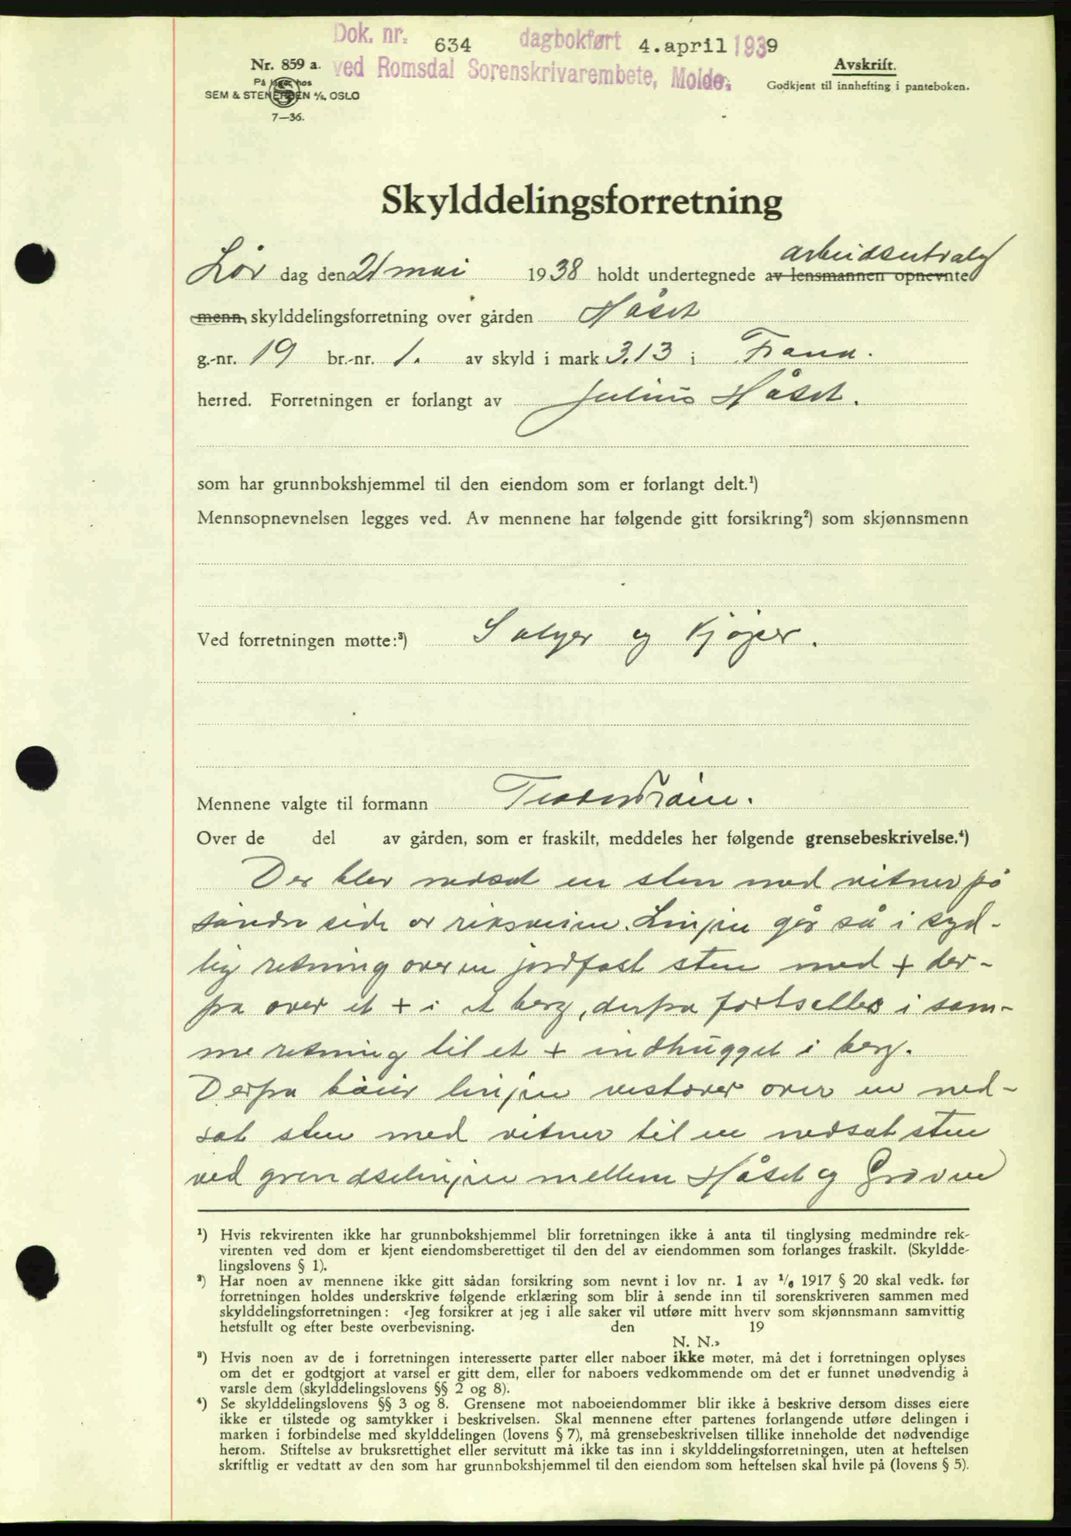 Dok. nr. 634 dagbokført 4. april 1939
ved Romsdal Sorenskrivarembete, Molde.
Nr. 859 a.
På lager hos
SEM & STENERSEN A/S, OSLO
7—36.
Avskrift.
Godkjent til innhefting i panteboken.
Skylddelingsforretning
Lør dag den 21 mai 1938 holdt undertegnede av lensmannen opnevnte
menn skylddelingsforretning over gården Håset
g.-nr. 19 br.-nr. 1. av skyld i mark 3.13 i Fræna.
herred. Forretningen er forlangt av Julius Håset.
som har grunnbokshjemmel til den eiendom som er forlangt delt.¹)
Mennsopnevnelsen legges ved. Av mennene har følgende gitt forsikring²) som skjønnsmenn
Ved forretningen møtte:³) Selger og Kjøper.
Mennene valgte til formann
Over de del av gården, som er fraskilt, meddeles her følgende grensebeskrivelse.⁴)
Der blev nedsat en sten med vitner på
søndre side av riksveien. Linjen går så i syd-
lig retning over en jordfast sten med + der-
fra over et + i et berg, derfra fortsettes i sam-
me retning til et + indhugget i berg.
Derfra bøier linjen vestover over en ned-
sat sten med vitner til en nedsat sten
ved grendselinjen mellem Håset og Grovne
¹) Hvis rekvirenten ikke har grunnbokshjemmel blir forretningen ikke å anta til tinglysing medmindre rek-
virenten ved dom er kjent eiendomsberettiget til den del av eiendommen som forlanges fraskilt. (Skyldde-
lingslovens § 1).
²) Har noen av mennene ikke gitt sådan forsikring som nevnt i lov nr. 1 av 1/6 1917 § 20 skal vedk. før
forretningen holdes underskrive følgende erklæring som blir å sende inn til sorenskriveren sammen med
skylddelingsforretningen: «Jeg forsikrer at jeg i alle saker vil utføre mitt hverv som skjønnsmann samvittig
hetsfullt og efter beste overbevisning. den 19
N. N.»
³) Hvis noen av de i forretningen interesserte parter eller naboer ikke møter, må det i forretningen oplyses
om det er godtgjort at varsel er gitt dem, eller for naboers vedkommende om det er funnet unødvendig å
varsle dem (skylddelingslovens §§ 2 og 8).
⁴) Se skylddelingslovens §§ 3 og 8. Grensene mot naboeiendommer blir ikke å beskrive dersom disses eiere
ikke er tilstede og samtykker i beskrivelsen. Skal mennene efter partenes forlangende utføre delingen i
marken i forbindelse med skylddelingen (lovens § 7), må grensebeskrivelsen tillike inneholde det nødvendige
herom. Stiftelse av bruksrettighet eller servitutt må ikke tas inn i skylddelingsforretningen, uten at heftelsen
skriftlig er vedtatt av den som har grunnbokshjemmel til den eiendom som heftelsen skal hvile på (lovens § 5).